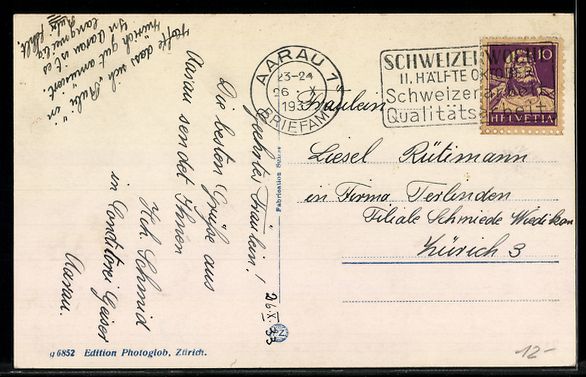 Hoffe das sich "Rubi" in
Zürich gut amusiert
In Aarau ist es
langweilig
Rubi fehlt.
Geehrte Fräulein!
Die besten Grüße aus
Aarau sendet Ihnen
Hch. Schmid
in Conditorei Geiser
Aarau.
26.X.33
Fabrication Suisse
AARAU 1
23-24
26 X
1933
BRIEFAMT
SCHWEIZERWOCHE
II. HÄLFTE OKTOBER
Schweizerarbeit
Qualitätsarbeit
10
HELVETIA
Fräulein
Liesel Rütimann
in Firma Terlinden
Filiale Schmiede Wiedikon
Zürich 3
g 6852 Edition Photoglob, Zürich.
PZ
12-